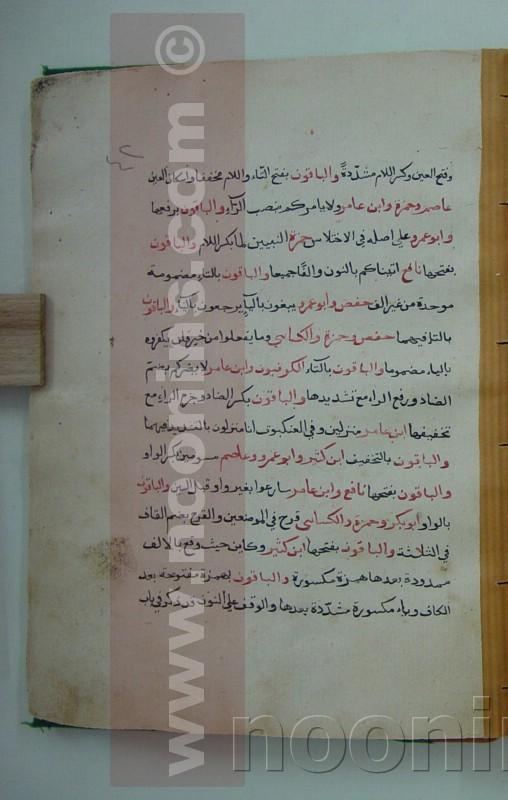 وفتح العين وكسر اللام مشدّدةً والباقون بفتح التاء واللام مخففا واسكان العين
عاصم وحمزة وابن عامر ولا يامركم بنصب الرآء والباقون برفعها
وابوعمرو على اصله في الاختلاس حمزة النبيين لما بكسر اللام والباقون
بفتحها نافع اتيناكم بالنون والف جميعا والباقون بالتاء مضمومة
موحدة من غير الف حفص وابوعمرو يبغون باليآء يرجعون باليآء والباقون
بالتاء فيهما حفص وحمزة والكسائي وما يفعلوا من خير فلن يكفروه
بالياء مضموما والباقون بالتآء الكوفيون وابن عامر لا يضركم بضم
الضاد ورفع الراء مع تشديدها والباقون بكسر الضاد وجزم الراء مع
تخفيفها ابن عامر منزلين وفي العنكبوت انا منزلون بالتشديد فيهما
والباقون بالتخفيف ابن كثير وابوعمرو وعاصم مسومين بكسر الواو
والباقون بفتحها نافع وابن عامر سارعوا بغير واو قبل السين والباقون
بالواو ابوبكر وحمزة والكسائي قرح في الموضعين والقرح بضم القاف
في الثلاثة والباقون بفتحها ابن كثير وكاين حيث وقع بالالف
ممدودة بعدها همزة مكسورة والباقون بهمزة مفتوحة بعد
الكاف وياء مكسورة مشدّدة بعدها والوقف على النون وقد ذكر في باب
www.noorlib.com ©